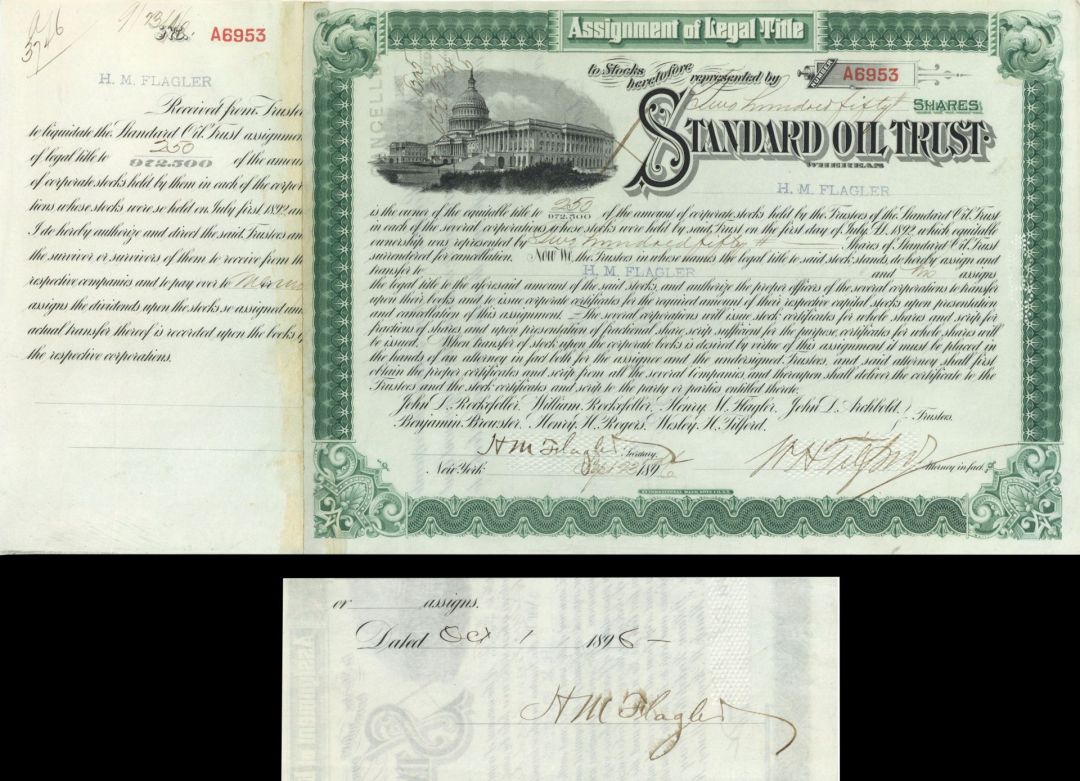 A6953
H. M. FLAGLER
Received from Trustees
to liquidate the Standard Oil Trust assignment
of legal title to 250
972.500 of the amount
of corporate stocks held by them in each of the corpora-
tions whose stocks were so held on July first 1892 and
I do hereby authorize and direct the said Trustees and
the survivor or survivors of them to receive from the
respective companies and to pay over to me or my
assigns the dividends upon the stocks so assigned until
actual transfer thereof is recorded upon the books of
the respective corporations.
Assignment of Legal Title
to Stocks heretofore represented by
NUMBER A6953
Two hundred fifty SHARES
STANDARD OIL TRUST.
WHEREAS
H. M. FLAGLER
is the owner of the equitable title to 250
972.500 of the amount of corporate stocks held by the Trustees of the Standard Oil Trust
in each of the several corporations whose stocks were held by said Trust on the first day of July A. 1892, which equitable
ownership was represented by Two hundred fifty Shares of Standard Oil Trust
surrendered for cancellation. NOW WE, the Trustees in whose names the legal title to said stock stands, do hereby assign and
transfer to H. M. FLAGLER and his assigns
the legal title to the aforesaid amount of the said stocks, and authorize the proper officers of the several corporations to transfer
upon their books and to issue corporate certificates for the required amount of their respective capital stocks upon presentation
and cancellation of this assignment. The several corporations will issue stock certificates for whole shares and scrip for
fractions of shares and upon presentation of fractional share scrip sufficient for the purpose, certificates for whole shares will
be issued. When transfer of stock upon the corporate books is desired by virtue of this assignment it must be placed in
the hands of an attorney in fact both for the assignee and the undersigned Trustees, and said attorney shall first
obtain the proper certificates and scrip from all the several Companies and thereupon shall deliver the certificate to the
Trustees and the stock certificates and scrip to the party or parties entitled thereto.
John D. Rockefeller, William Rockefeller, Henry M. Flagler, John D. Archbold,
Benjamin Brewster, Henry H. Rogers, Wesley H. Tilford. Trustees.
H M Flagler Secretary.
W H Tilford Attorney in fact.
New York 189
INTERNATIONAL BANK NOTE CO. N.Y.
or assigns.
Dated Oct 1 1896
H M Flagler